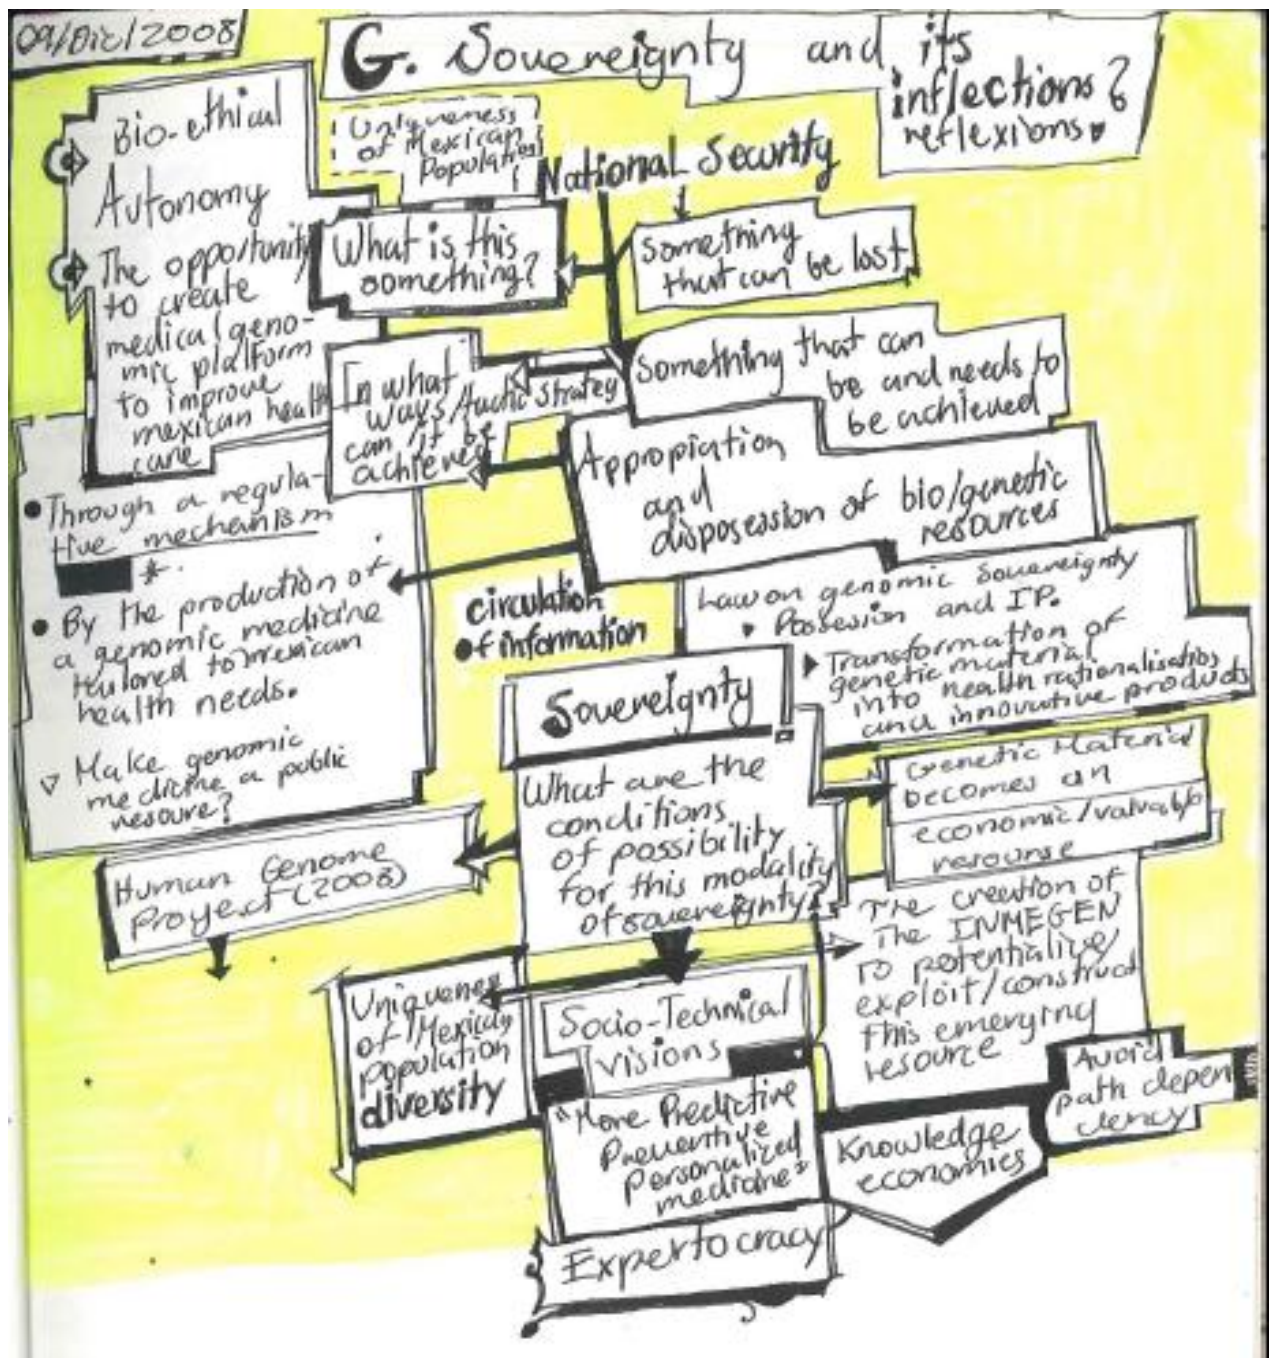 09/Dic/2008
G. Sovereignty and its
inflections?
reflexions
Uniqueness
of Mexican
Population
National Security
Bio-ethical
Autonomy
The opportunity
to create
medical geno-
mic platform
to improve
mexican health
care
What is this
something?
Something
that can be lost
In what
ways/tactic strategy
can it be
achieved
Something that can
be and needs to
be achieved
Appropiation
and
disposession of bio/genetic
resources
Through a regula-
tive mechanism
*
By the production of
a genomic medicine
tailored to mexican
health needs.
Make genomic
medicine a public
resoure?
circulation
of information
Law on genomic Sovereignty
Possesion and IP.
Transformation of
genetic material
into health rationalisation
and innovative products
Sovereignty
What are the
conditions
of possibility
for this modality
of sovereignty?
Genetic Material
becomes an
economic/valuable
resourse
Human Genome
Proyect (2003)
The creation of
The INMEGEN
To potentialive/
exploit/construct
this emerging
resource
Uniqueness
of Mexican
population
diversity
Socio-Technical
visions
"More Predictive
Preventive
Personalized
medicine"
Avoid
path depen
dency
Knowledge
economies
Expertocracy